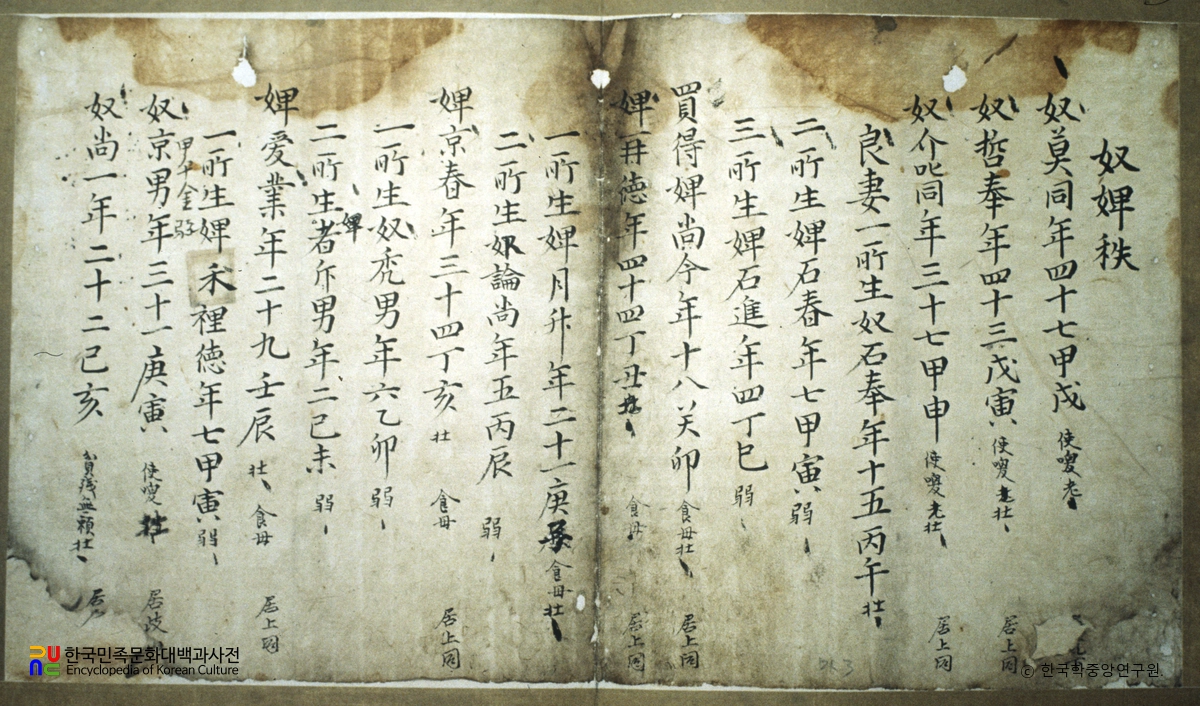 奴婢秩
奴莫同年四十七甲戌 使喚老
奴哲奉年四十三戊寅 使喚老壯 居上同
奴介叱同年三十七甲申 使喚老壯 居上同
良妻一所生奴石奉年十五丙午 壯
二所生婢石春年七甲寅 弱
三所生婢石進年四丁巳 弱
買得婢尚今年十八癸卯 食母壯 居上同
婢一井德年四十四丁丑 食母 居上同
一所生婢月升年二十一庚 食母壯
二所生奴論尚年五丙辰 弱
婢京春年三十四丁亥 壯 食母 居上同
一所生奴禿男年六乙卯 弱
二所生者斤男年二己未 弱
婢
婢爱業年二十九壬辰 壯 食母 居上同
一所生婢禾裡德年七甲寅 弱
甲午金
奴京男年三十一庚寅 使喚 壯 居
奴尚一年二十二己亥 壯 居
한국민족문화대백과사전
Encyclopedia of Korean Culture
© 한국학중앙연구원.